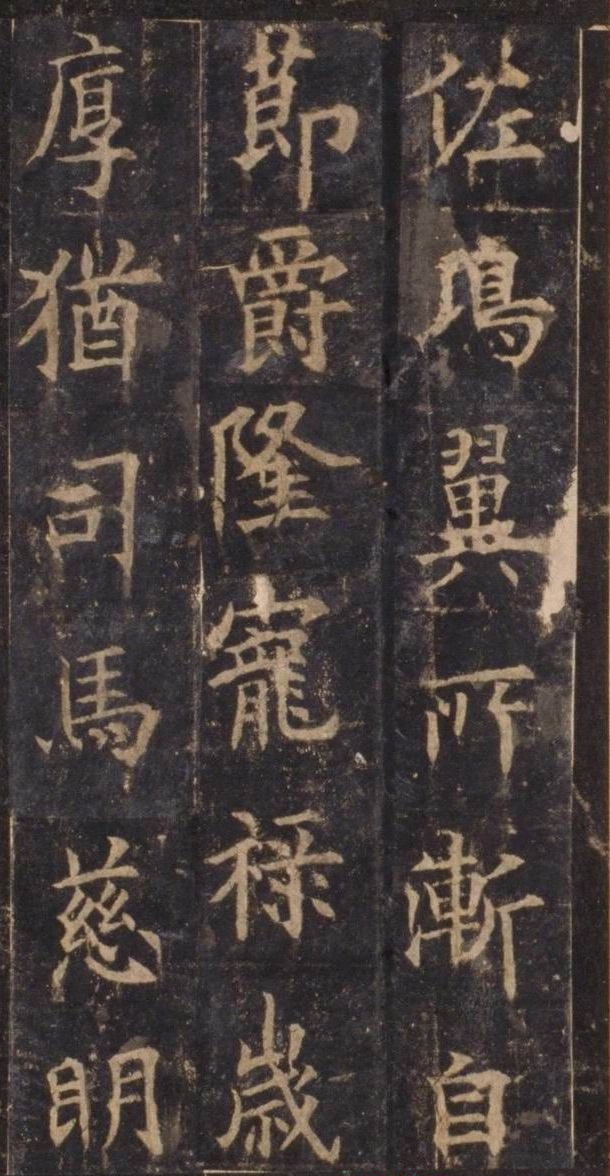 佐鴻翼所漸自
莭爵隆寵禄歲
厚猶司馬慈明